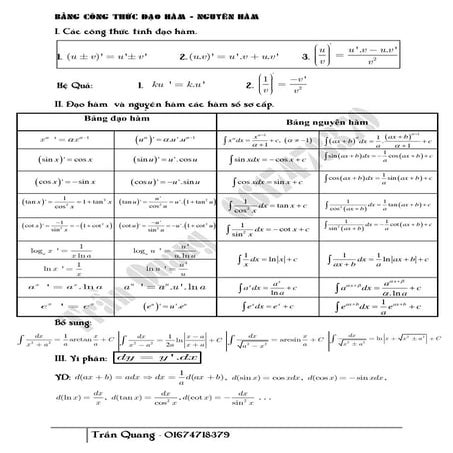 BẢNG CÔNG THỨC ĐẠO HÀM - NGUYÊN HÀM
I. Các công thức tính đạo hàm.
1. (u ± v)' = u' ± v' 2. (u.v)' = u'.v + u.v' 3. (u/v)' = (u'.v − u.v')/v²
Hệ Quả: 1. ku ' = k.u' 2. (1/v)' = −v'/v²
II. Đạo hàm và nguyên hàm các hàm số sơ cấp.
Bảng đạo hàm Bảng nguyên hàm
x^α ' = αx^(α−1) (u^α)' = α.u'.u^(α−1) ∫x^α dx = x^(α+1)/(α+1) + c, (α ≠ −1) ∫(ax+b)^α dx = 1/a (ax+b)^(α+1)/(α+1) + c
(sin x)' = cos x (sin u)' = u'.cos u ∫sin xdx = −cos x + c ∫sin(ax+b)dx = −1/a cos(ax+b) + c
(cos x)' = −sin x (cos u)' = −u'.sin u ∫cos xdx = sin x + c ∫cos(ax+b)dx = 1/a sin(ax+b) + c
(tan x)' = 1/cos² x = 1 + tan² x (tan u)' = u'/cos² u = u'.(1 + tan² u) ∫1/cos² x dx = tan x + c ∫1/cos²(ax+b) dx = 1/a tan(ax+b) + c
(cot x)' = −1/sin² x = −(1 + cot² x) (cot u)' = −u'/sin² u = −u'.(1 + cot² u) ∫1/sin² x dx = −cot x + c ∫1/sin²(ax+b) dx = −1/a cot(ax+b) + c
log_a x ' = 1/(x ln a) log_a u ' = u'/(u ln a) ∫1/x dx = ln|x| + c ∫1/(ax+b) dx = 1/a ln|ax+b| + c
ln x ' = 1/x ln u ' = u'/u
a^x ' = a^x.ln a a^u ' = u'.a^u.ln a ∫a^x dx = a^x/ln a + c ∫a^(αx+β) dx = a^(αx+β)/(α.ln a) + c
e^x ' = e^x (e^u)' = u'.e^u ∫e^x dx = e^x + c ∫e^(ax+b) dx = 1/a e^(ax+b) + c
Bổ sung:
∫dx/(x² + a²) = 1/a arctan x/a + C ∫dx/(x² − a²) = 1/2a ln|(x − a)/(x + a)| + C ∫dx/√(a² − x²) = arcsin x/a + C ∫dx/√(x² ± a²) = ln|x + √(x² ± a²)| + C
III. Vi phân: dy = y'.dx
VD: d(ax + b) = adx ⇒ dx = 1/a d(ax + b), d(sin x) = cos xdx, d(cos x) = −sin xdx,
d(ln x) = dx/x, d(tan x) = dx/cos² x, d(cot x) = −dx/sin² x ...
Trần Quang - 01674718379